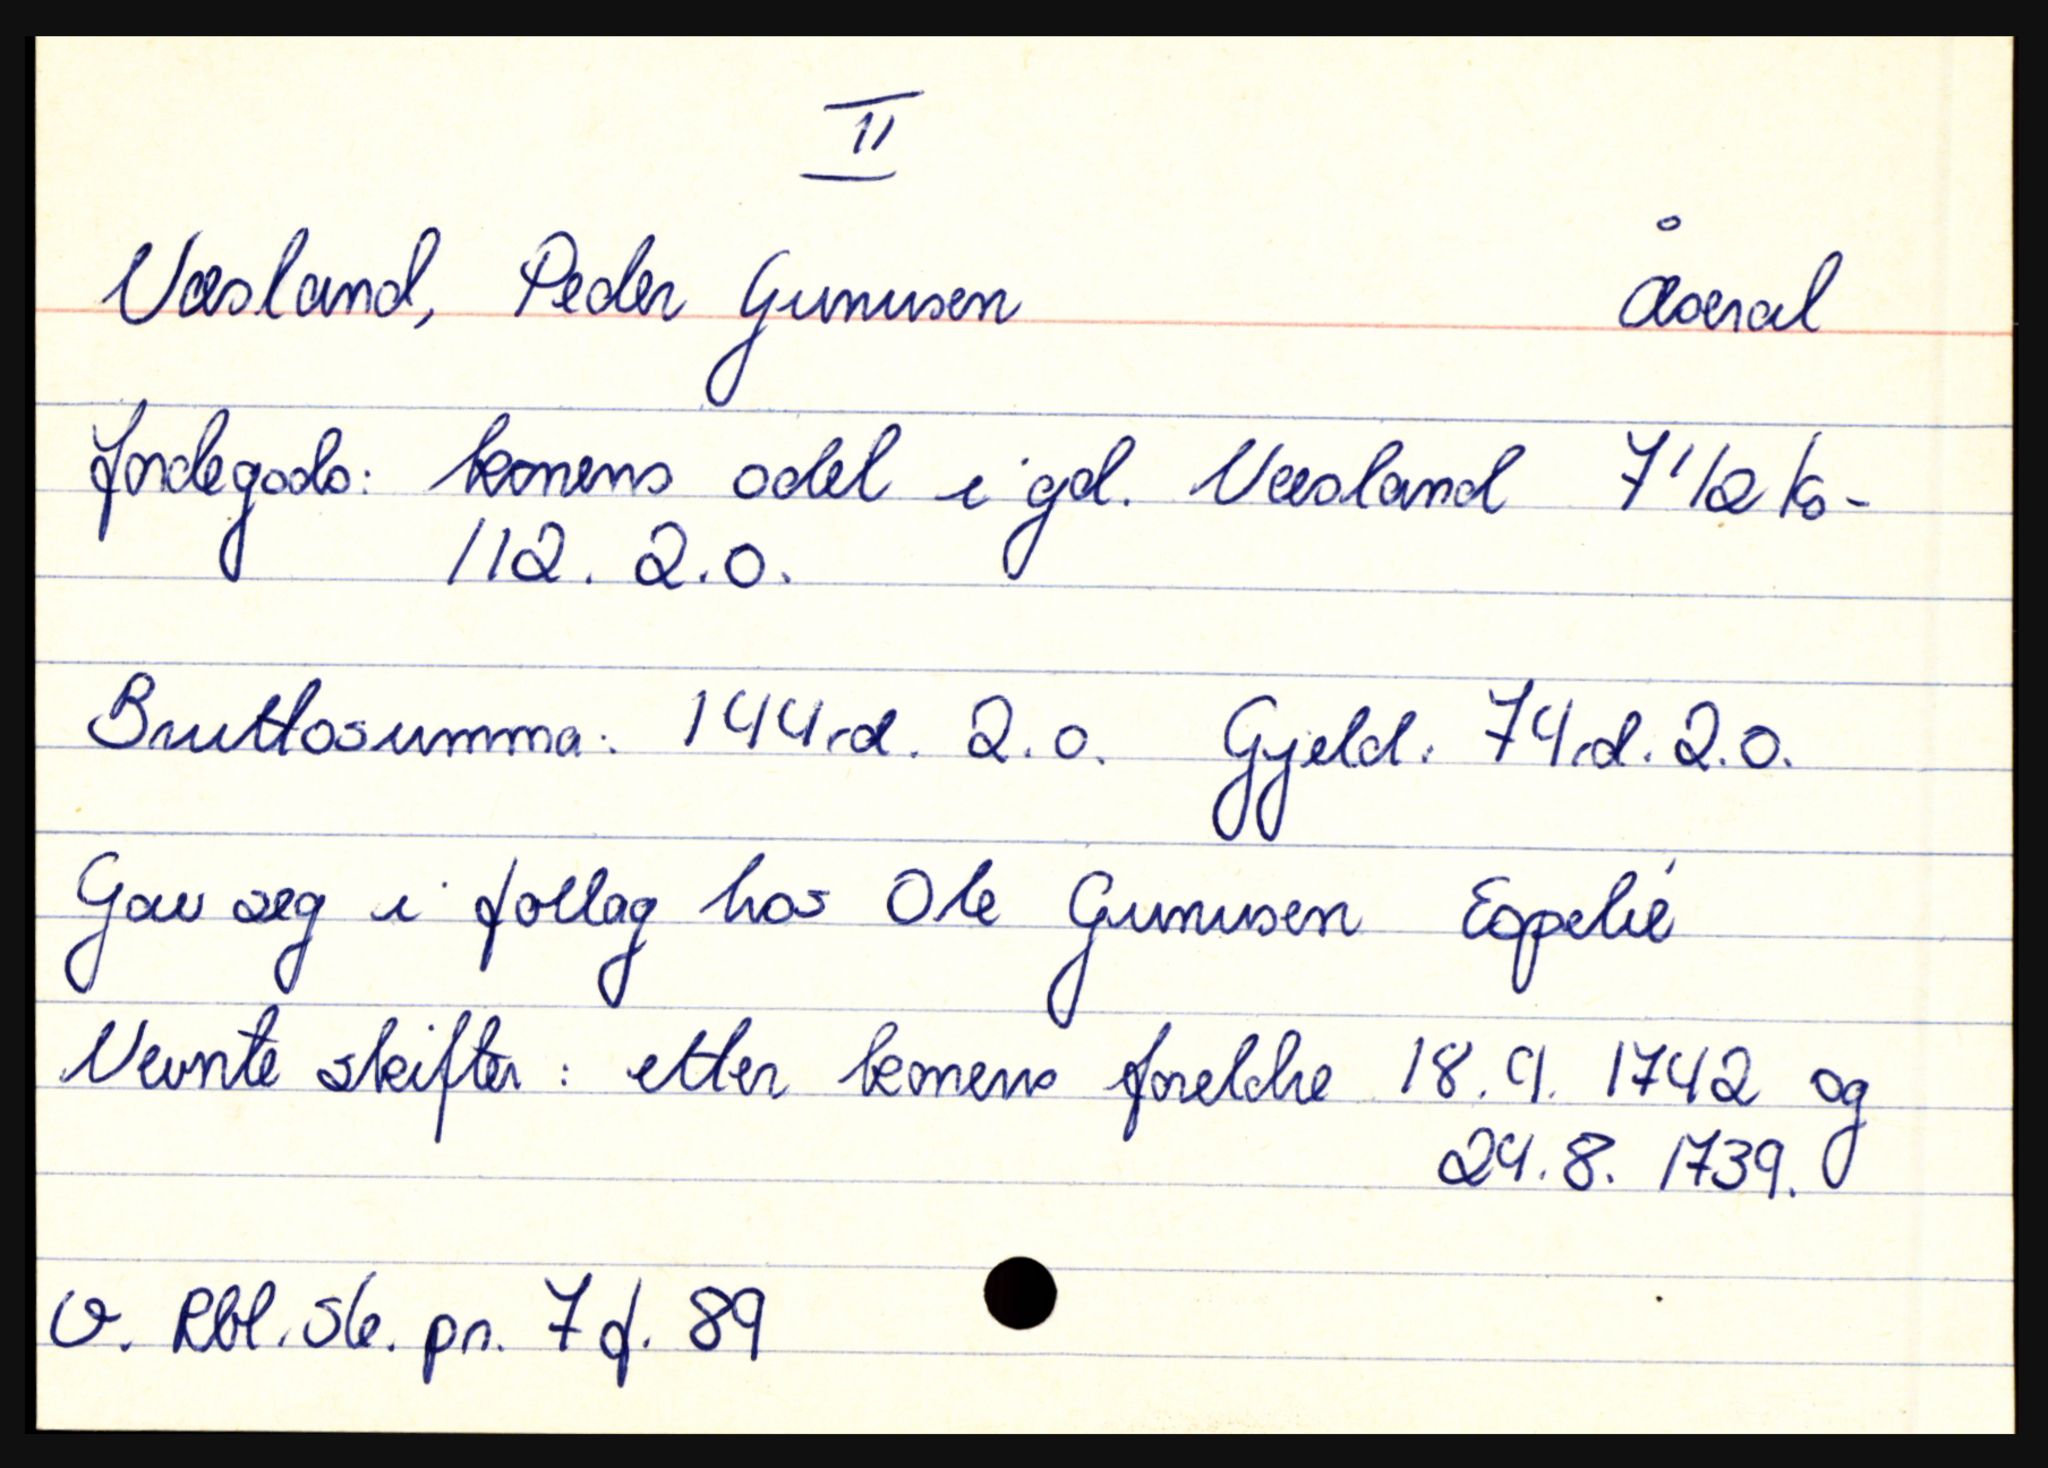 II
Væsland, Peder Gunnusen Åseral
Jordegods: konens odel i gd. Væsland 7 1/2 ks-
112. 2. 0.
Bruttosumma: 144 rd. 2. 0. Gjeld: 74 rd. 2. 0.
Gav seg i follag hos Ole Gunnusen Espelié
Nevnte skifter: etter konens foreldre 18. 9. 1742 og
24. 8. 1739.
V. Rbl. sk. pr. 7 f. 89